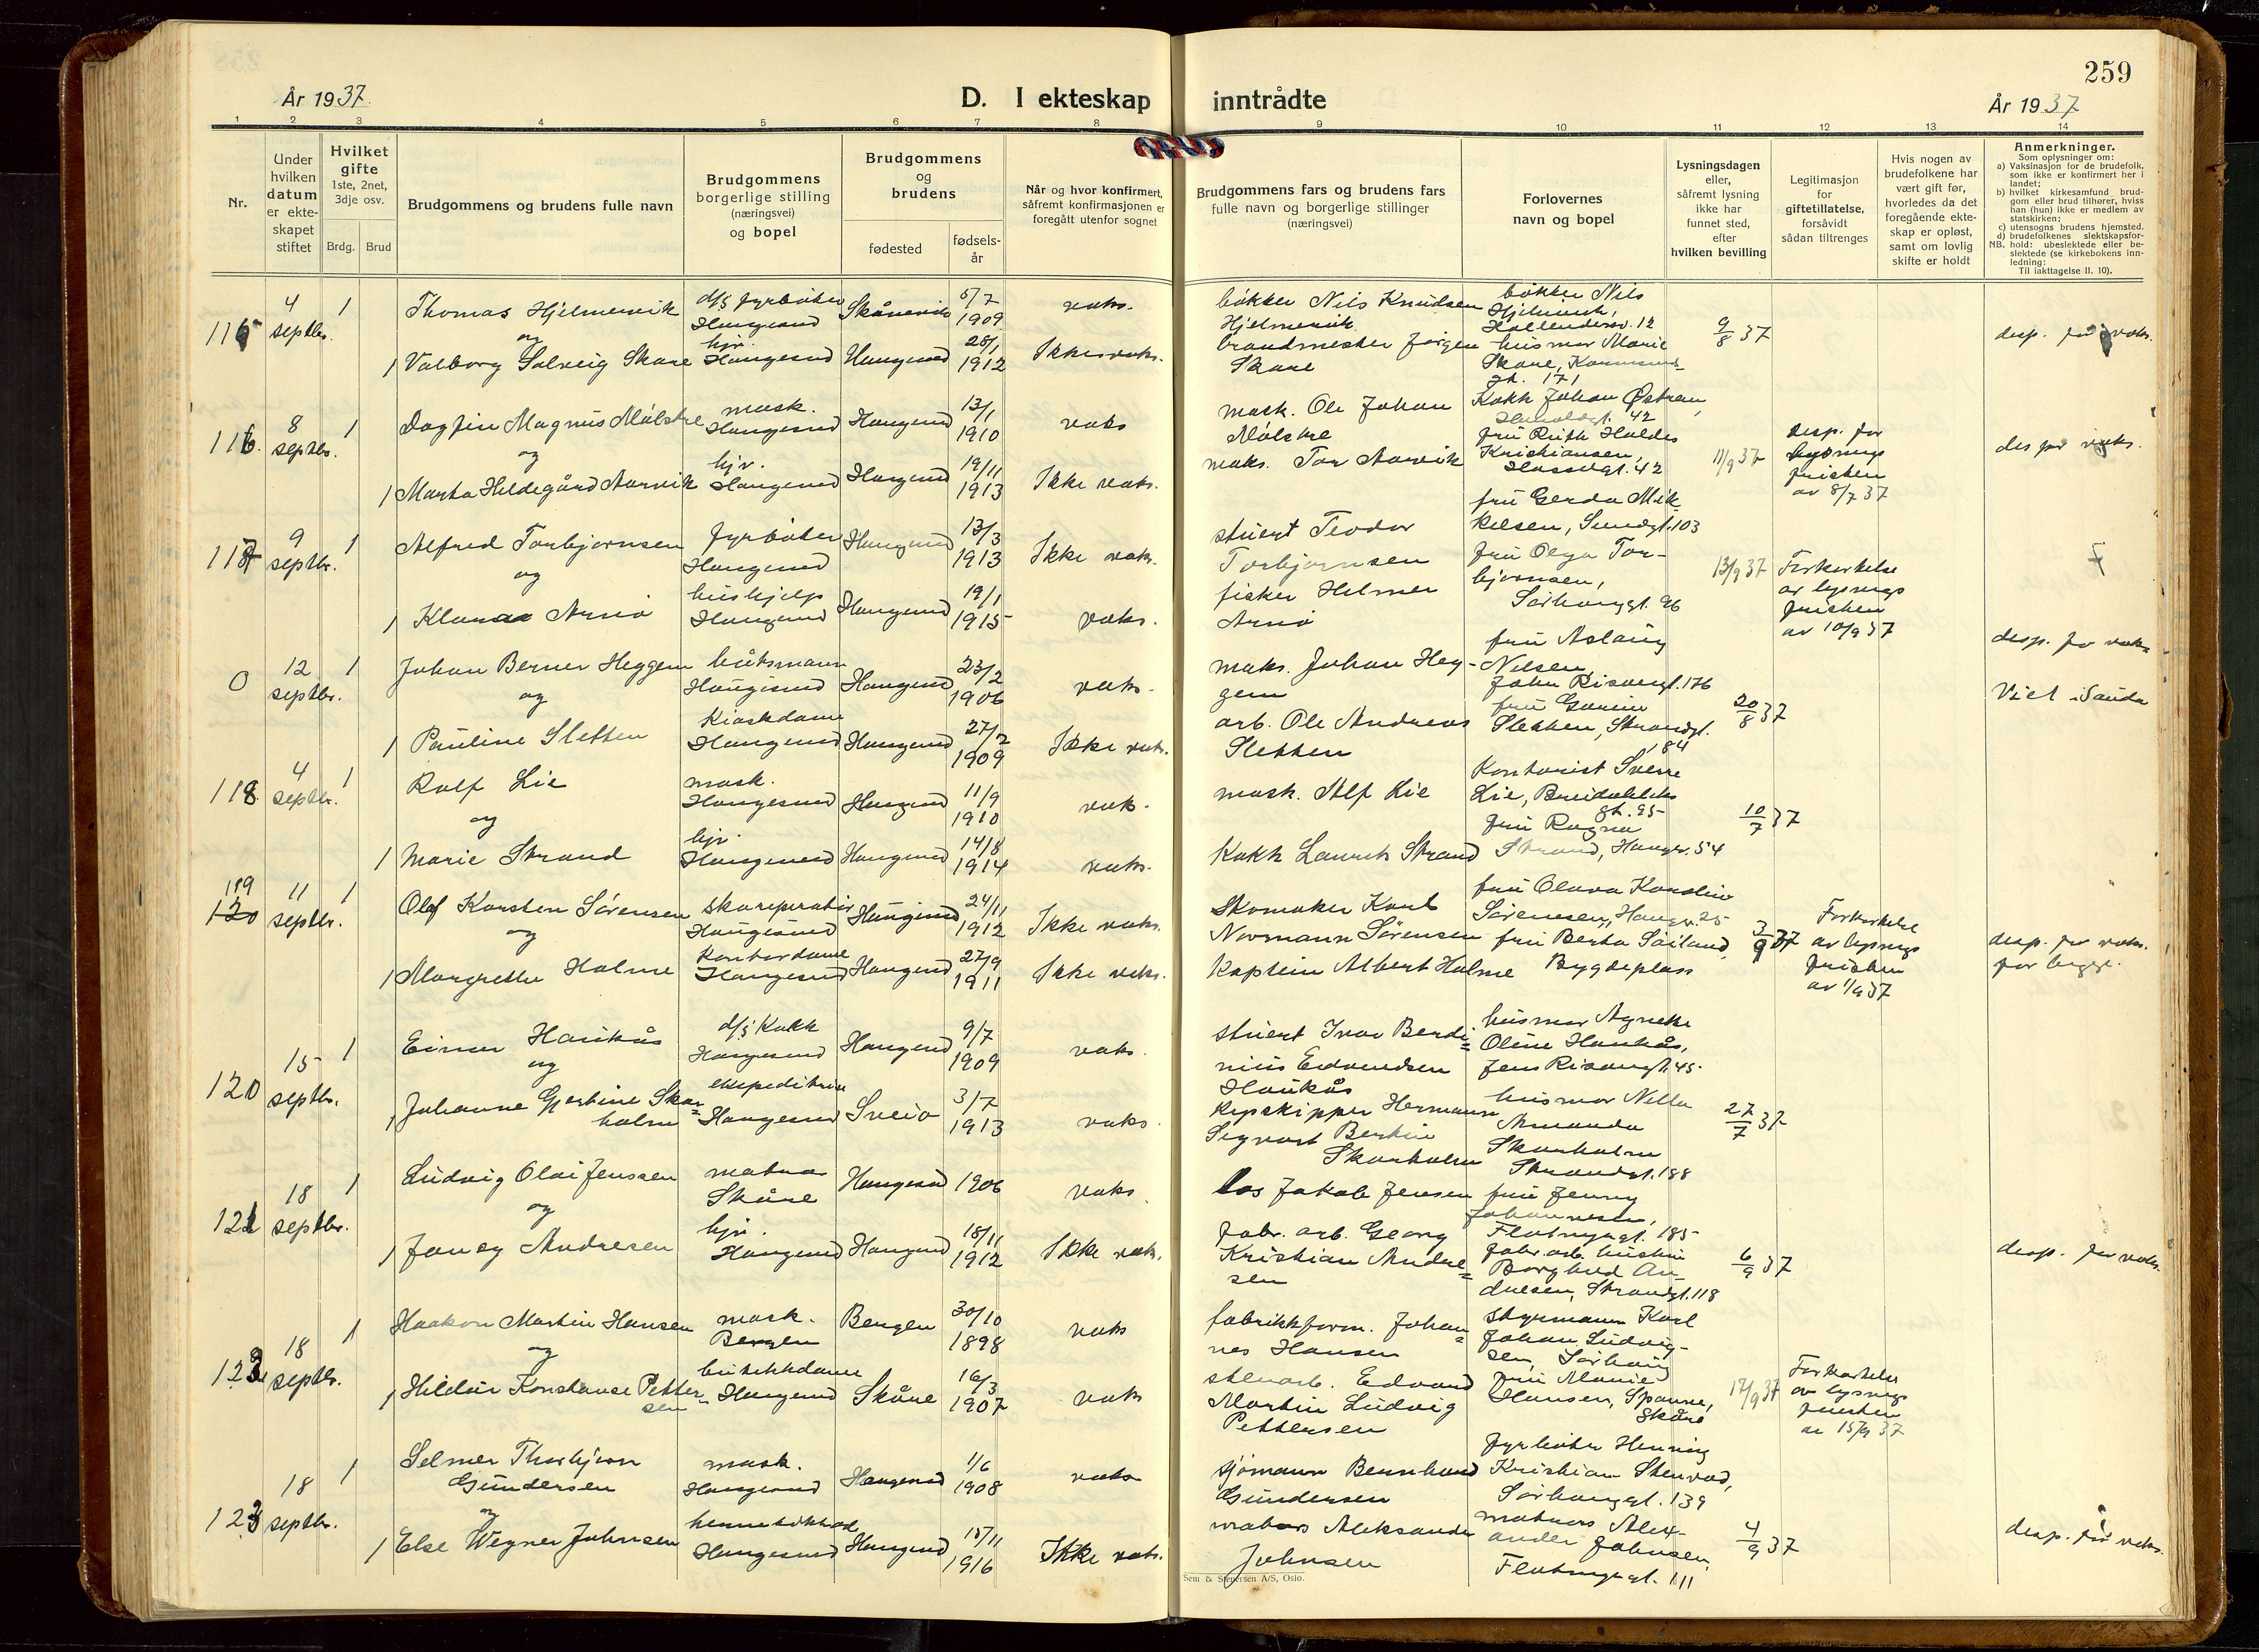 259
År 1937.
D. I ekteskap inntrådte
År 1937
1 2 3 4 5 6 7 8 9 10 11 12 13 14
Nr.
Under hvilken datum er ekte-skapet stiftet
Hvilket gifte 1ste, 2net, 3dje osv.
Brdg. Brud
Brudgommens og brudens fulle navn
Brudgommens borgerlige stilling (næringsvei) og bopel
Brudgommens og brudens
fødested
fødsels-år
Når og hvor konfirmert, såfremt konfirmasjonen er foregått utenfor sognet
Brudgommens fars og brudens fars fulle navn og borgerlige stillinger (næringsvei)
Forlovernes navn og bopel
Lysningsdagen eller, såfremt lysning ikke har funnet sted, efter hvilken bevilling
Legitimasjon for giftetillatelse, forsåvidt sådan tiltrenges
Hvis nogen av brudefolkene har vært gift før, hvorledes da det foregående ekte-skap er opløst, samt om lovlig skifte er holdt
Anmerkninger.
Som oplysninger om:
a) Vaksinasjon for de brudefolk, som ikke er konfirmert her i landet;
b) hvilket kirkesamfund brud-gom eller brud tilhører, hviss han (hun) ikke er medlem av statskirken;
c) utensogns brudens hjemsted.
d) brudefolkenes slektskapsfor-
NB. hold: ubeslektede eller be-slektede (se kirkebokens inn-ledning: Til iakttagelse II. 10).
115 4 septbr. 1 Thomas Hjelmervik d/s fyrbøter Haugesund Skånevik 5/7 1909 vaks.
og
1 Valborg Solveig Skare hjv. Haugesund Haugesund 28/1 1912 Ikke vaks.
bøkker Nils Knudsen Hjelmervik
brandmester Jørgen Skare
bøkker Nils Hjelmervik, Hollenderv. 12
husmor Marie Skare, 171
9/8 37
desp. for vaks.
116. 8 septbr. 1 Dagfin Magnus Mølstre mask. Haugesund Haugesund 13/1 1910 vaks
og
1 Marta Hildegård Aarvik hjv. Haugesund Haugesund 19/11 1913 Ikke vaks.
mask. Ole Johan Mølstre
maks. Tor Aarvik
Kokk Johan Østrem, 42
fru Ruth Haldis Kristiansen, 42
11/9 37
desp. for lysnings fristen av 8/7 37
des for vaks.
117 9 septbr. 1 Alfred Torbjørnsen fyrbøter Haugesund Haugesund 13/3 1913 Ikke vaks.
og
1 Klara Arnø hushjelp Haugesund Haugesund 19/1 1915 vaks.
stuert Teodor Torbjørnsen
fisker Helmer Arnø
fru Gerda Mikkelsen, Sundgt. 103
fru Olga Torbjørnsen, Sørhauggt. 96
13/9 37
Forkortelse av lysnings fristen av 10/9 37
0 12 septbr. 1 Johan Berner Heggem båtsmann Haugesund Haugesund 23/2 1906 vaks.
og
1 Pauline Sletten Kioskdame Haugesund Haugesund 27/2 1909 Ikke vaks.
maks. Johan Heggem
arb. Ole Andreas Sletten
fru Aslaug Nilsen, 176
fru Sletten, Strandgt. 184
20/8 37
desp. for vaks
Viet i Sauda
118. 4 septbr. 1 Rolf Lie mask. Haugesund Haugesund 11/9 1910 vak.
og
1 Marie Strand hjv. Haugesund Haugesund 14/8 1914 vaks.
mask. Alf Lie
Kokk Laurits Strand
Kontorist Sverre Lie, gt. 95
fru Ragna Strand, Haugev. 54
10/7 37
119 120 11 septbr. 1 Olaf Karsten Sørensen skoreperatør Haugesund Haugesund 24/11 1912 Ikke vaks.
og
1 Margrethe Holme Kontordame Haugesund Haugesund 27/9 1911 Ikke vaks.
Skomaker Kont Normann Sørensen
Kaptein Albert Holme
fru Olava Sørensen, Haugev. 25
fru Berta Søiland, Bygdeplass
3/9 37
Forkortelse av lysnings fristen av 1/9 37
desp. for vaks. for begge.
120 15 septbr. 1 Einar Haukås d/s Kokk Haugesund Haugesund 9/7 1909 vaks.
og
1 Johanne Gjertine Skarholm ekspeditrise Haugesund Sveio 3/7 1913 vaks.
stuert Ivar Berdinius Edvardsen Haukås
Skipper Hermann Sigvart Bertin Skarholm
husmor Agnete Oline Haukås, Jens Risøensgt. 45.
husmor Nella Amanda Skarholm Strandgt. 188
27/7 37
121 18 septbr. 1 Ludvig Olai Jenssen matros Skåre Haugesund 1906 vaks.
og
1 Janey Andresen hjv. Haugesund Haugesund 18/11 1912 Ikke vaks.
Los Jakob Jensen
Fabr. arb. Georg Kristian Andresen
fru Jenny Johannesen, Flotmyrgt. 185
fabr. arb. hustru Borghild Andresen, Strandgt. 118
6/9 37
desp. for vaks.
122 18 septbr. 1 Haakon Martin Hansen mask. Bergen Bergen 30/10 1898 vaks
og
1 Hildur Konstanse Pettersen butikkdame Haugesund Skåre 16/3 1907 vaks
fabrikkform. Johannes Hansen
stenarb. Edvard Martin Ludvig Pettersen
styrmann Karl Johan Ludvigsen, Sørhaug
fru Marie Hansen, Spanne, Skåre
17/9 37
Forkortelse av lysnings fristen av 15/9 37
123 18 septbr. 1 Selmer Thorbjørn Gundersen mask. Haugesund Haugesund 1/6 1908 vaks
og
1 Else Wegner Johnsen Haugesund Haugesund 15/11 1916 Ikke vaks.
sjømann Bernhard Gundersen
matros Aleksander Johnsen
fyrbøter Henning Kristian Stenvad, Sørhauggt. 139
matros Alexander Johnsen, Flotmyrgt. 111
4/9 37
desp. for vaks.
Sem & Stenersen A/S, Oslo.